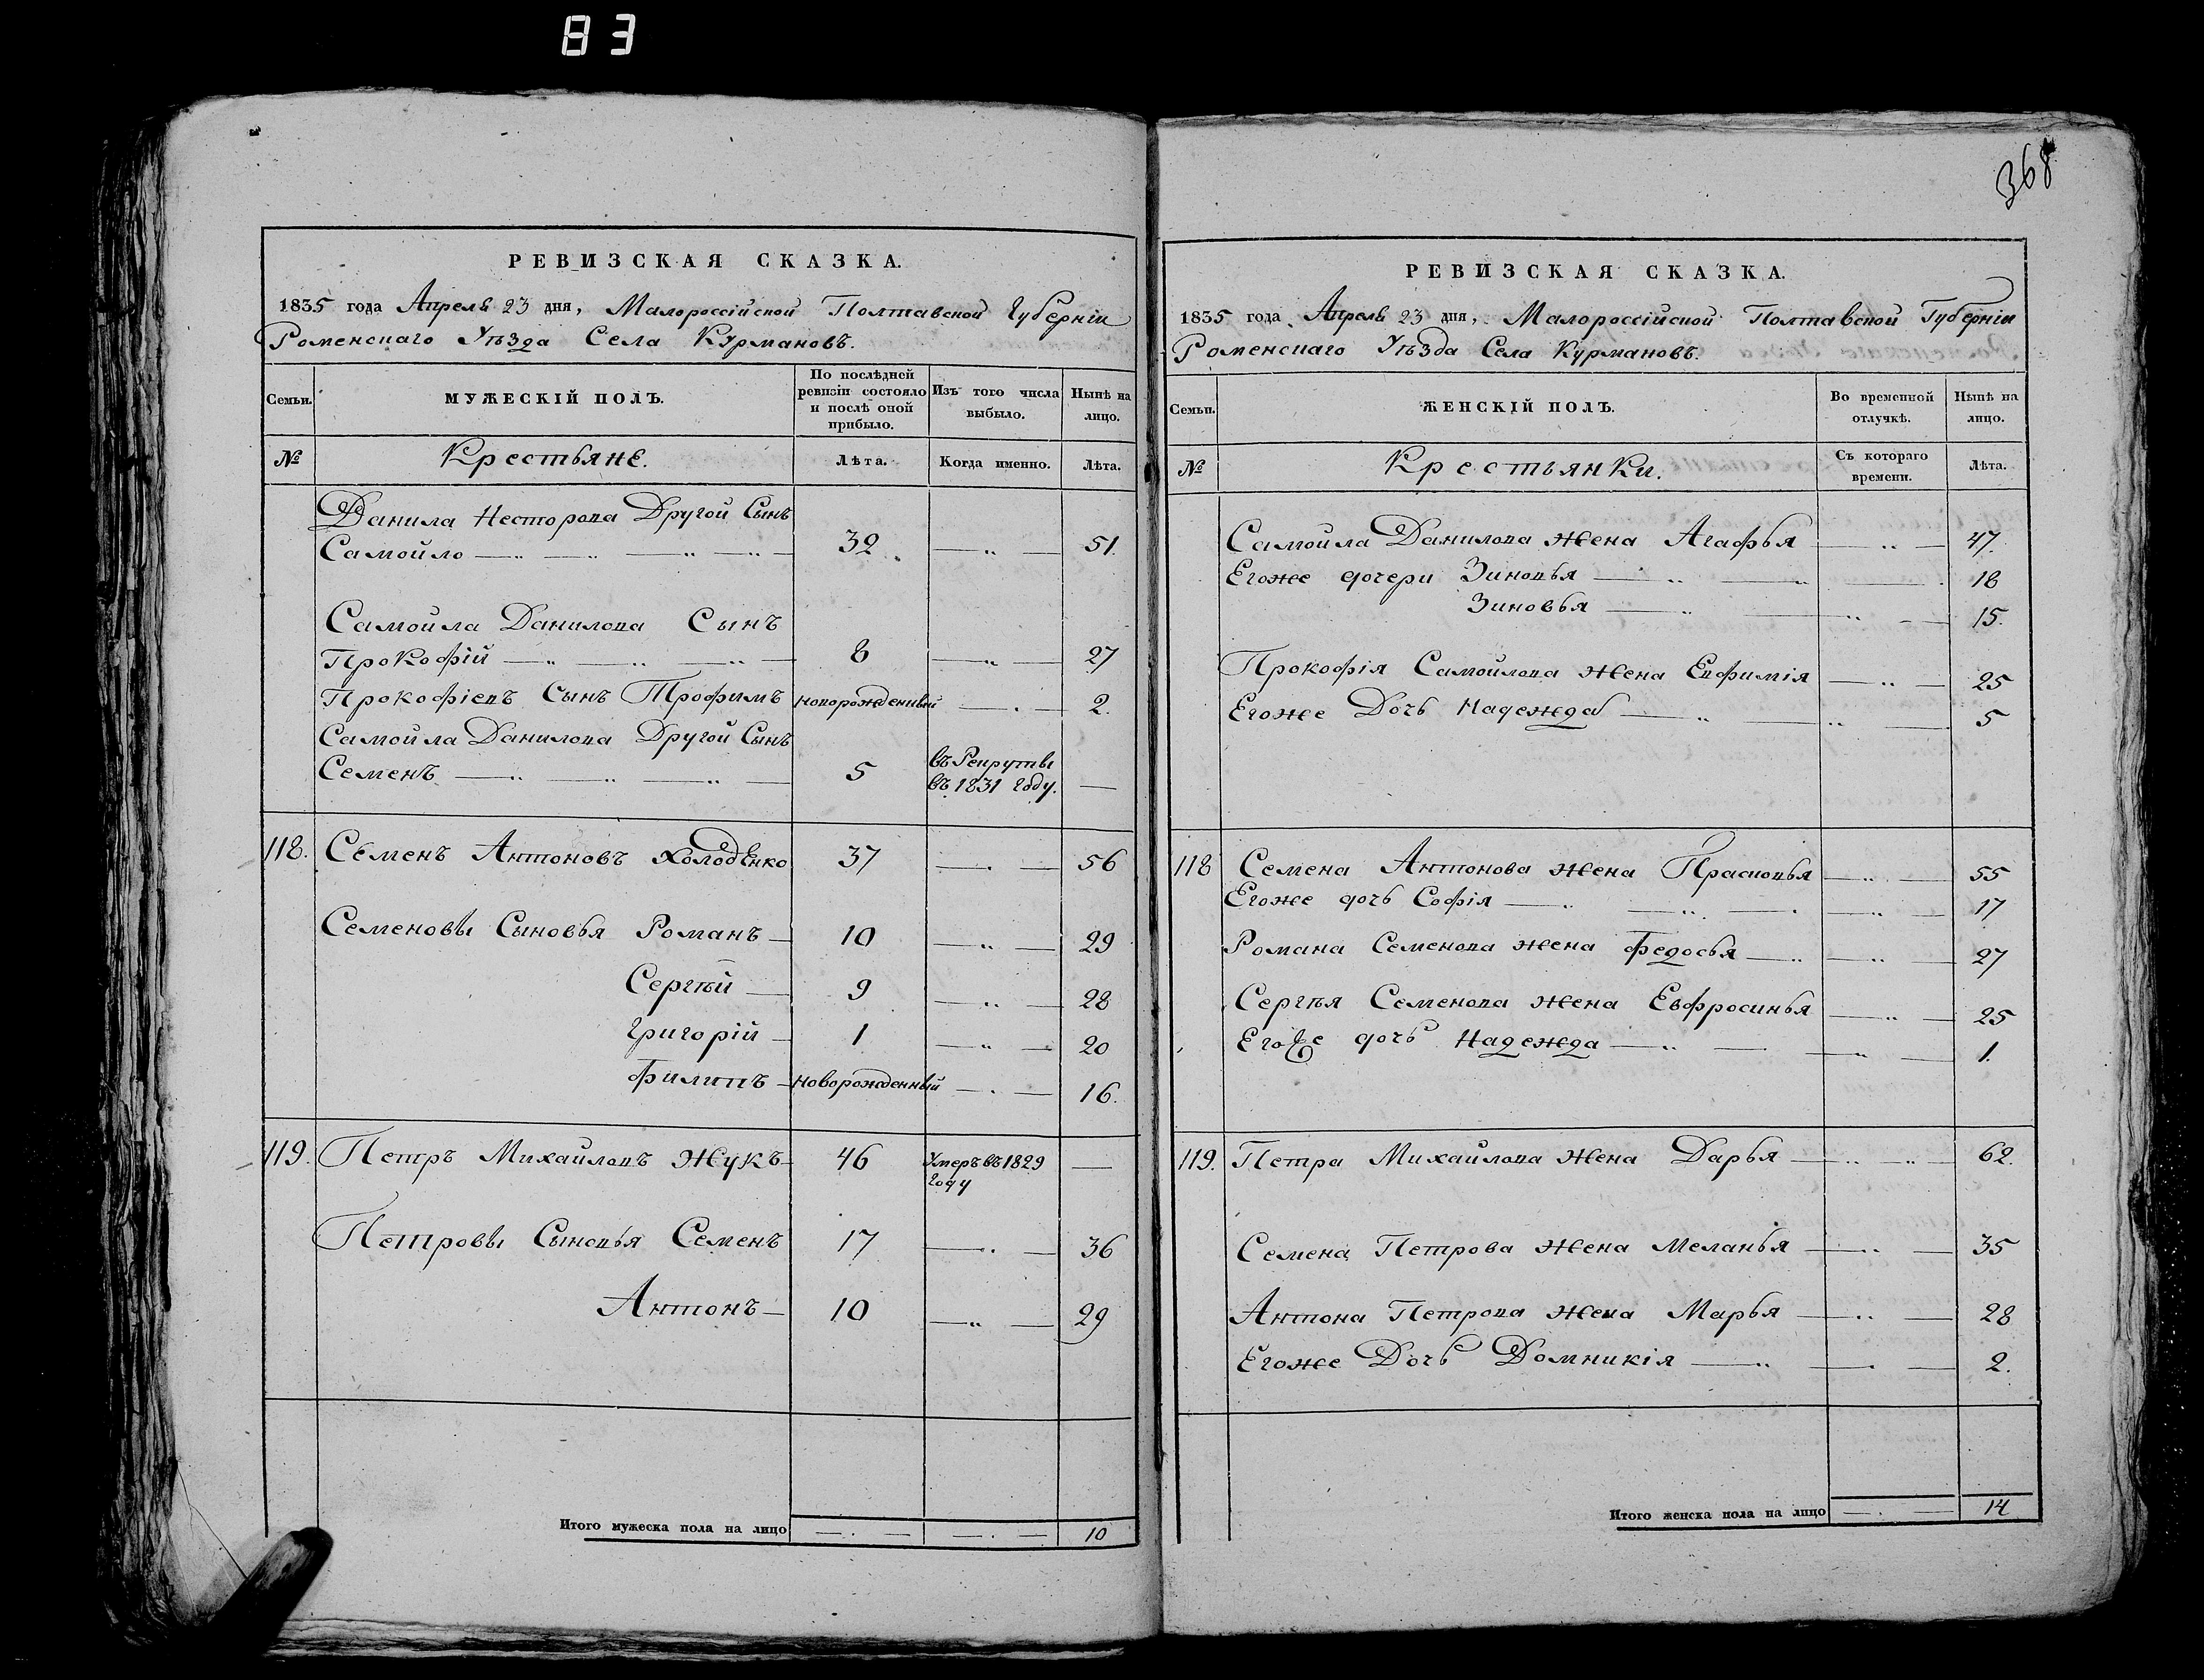 83
368
РЕВИЗСКАЯ СКАЗКА.
1835 года Апреля 23 дня, Малороссійской Полтавской Губерніи
Роменскаго Уѣзда Села Курмановъ.
Семьи. МУЖЕСКІЙ ПОЛЪ. По послѣдней ревизіи состояло и послѣ оной прибыло. Изъ того числа выбыло. Нынѣ на лицо.
№ Крестьяне. Лѣта. Когда именно. Лѣта.
Данила Несторова Другой Сынъ
Самойло 32 51.
Самойла Данилова Сынъ
Прокофій 8 27
Прокофіевъ Сынъ Трофимъ новорожденный 2.
Самойла Данилова Другой Сынъ
Семенъ 5 въ Рекруты
въ 1831 году.
118. Семенъ Антоновъ Холоденко 37 56
Семеновы Сыновья Романъ 10 29
Сергѣй 9 28
Григорій 1 20
Филипъ новорожденный 16.
119. Петръ Михайловъ Жукъ 46 Умеръ въ 1829
году
Петровы Сыновья Семенъ 17 36
Антонъ 10 29
Итого мужеска пола на лицо 10
РЕВИЗСКАЯ СКАЗКА.
1835 года Апреля 23 дня, Малороссійской Полтавской Губерніи
Роменскаго Уѣзда Села Курмановъ.
Семьи. ЖЕНСКІЙ ПОЛЪ. Во временной отлучкѣ. Нынѣ на лицо.
№ Крестьянки. Съ котораго времени. Лѣта.
Самойла Данилова жена Агафья 47.
Егоже дочери Зиновья 18
Зиновья 15.
Прокофія Самойлова жена Евфимія 25
Егоже Дочь Надежда 5
118 Семена Антонова жена Прасковья 55
Егоже дочь Софія 17
Романа Семенова жена Федосья 27
Сергѣя Семенова жена Евфросинья 25
Егоже дочь Надежда 1.
119. Петра Михайлова жена Дарья 62.
Семена Петрова жена Меланья 35
Антона Петрова жена Марья 28
Егоже Дочь Домникія 2.
Итого женска пола на лицо 14